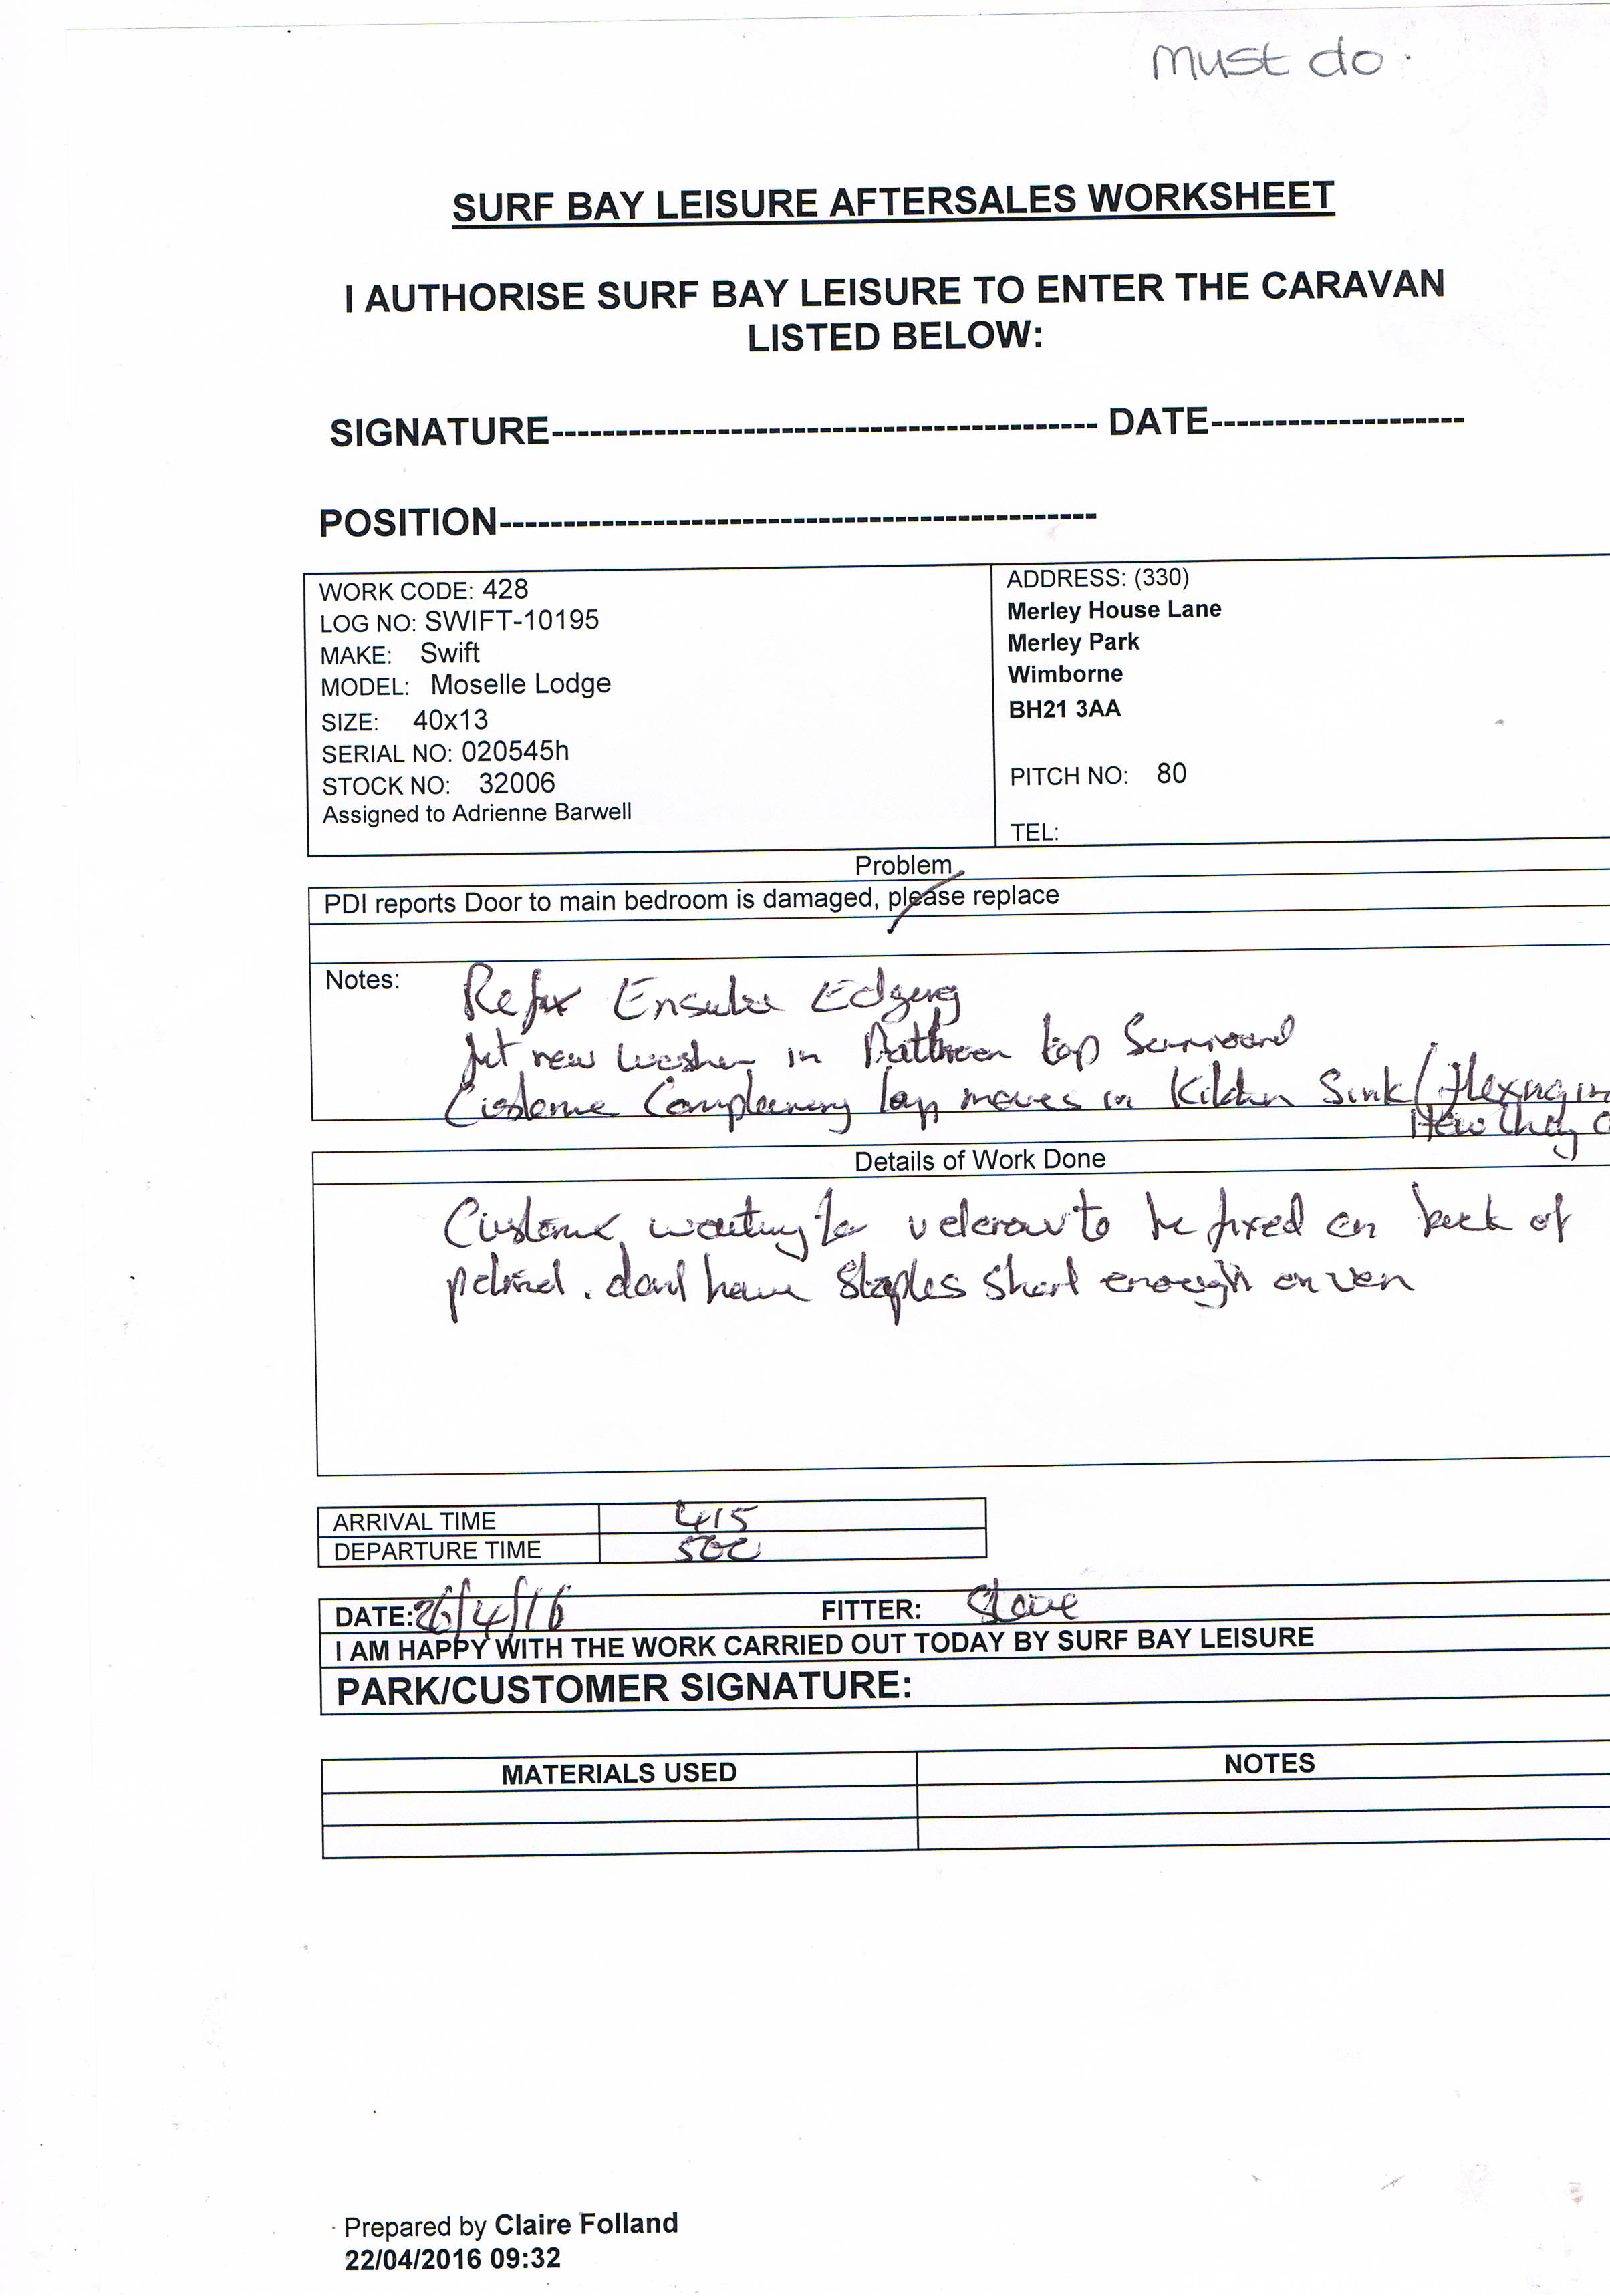 must do.
SURF BAY LEISURE AFTERSALES WORKSHEET
I AUTHORISE SURF BAY LEISURE TO ENTER THE CARAVAN
LISTED BELOW:
SIGNATURE------------------------------------------- DATE--------------------
POSITION-----------------------------------------------
WORK CODE: 428
LOG NO: SWIFT-10195
MAKE: Swift
MODEL: Moselle Lodge
SIZE: 40x13
SERIAL NO: 020545h
STOCK NO: 32006
Assigned to Adrienne Barwell
ADDRESS: (330)
Merley House Lane
Merley Park
Wimborne
BH21 3AA
PITCH NO: 80
TEL:
Problem
PDI reports Door to main bedroom is damaged, please replace
Notes:
Refix Ensuite Edging
fit new washer in Bathroom tap Surround
Customer Complaining tap moves in Kitchen Sink /flexing in
Details of Work Done
Customer waiting for velcrow to be fixed on back of
pelmet. dont have Staples short enough on van
ARRIVAL TIME 415
DEPARTURE TIME 500
DATE: 26/4/16 FITTER: Steve
I AM HAPPY WITH THE WORK CARRIED OUT TODAY BY SURF BAY LEISURE
PARK/CUSTOMER SIGNATURE:
MATERIALS USED NOTES
Prepared by Claire Folland
22/04/2016 09:32